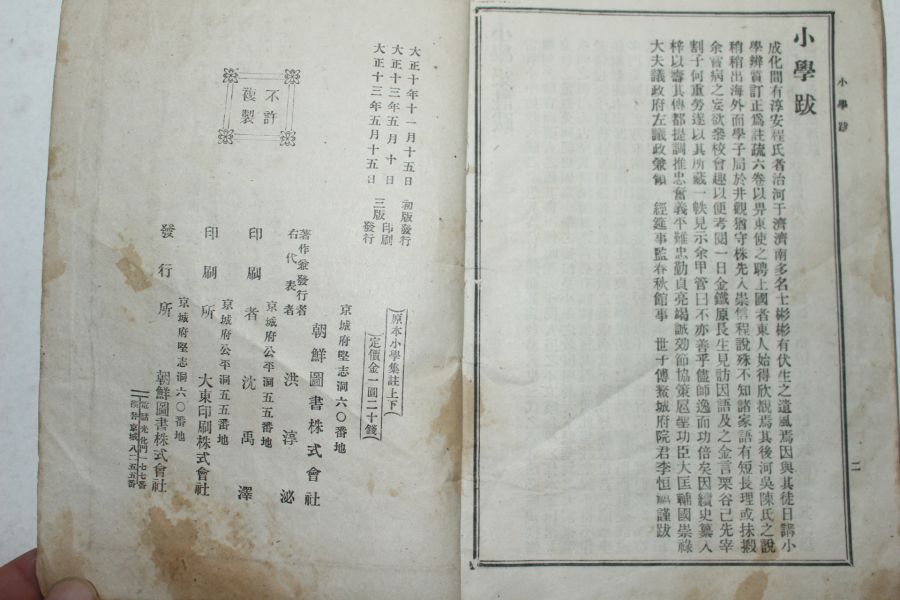 小學跋
小學跋
成化間有淳安程氏者治河于濟濟南多名士彬彬有伏生之遺風焉因與其徒日講小
學辨質訂正爲註疏六卷以畀東使之聘上國者東人始得欣覩焉其後河吳陳氏之說
稍稍出海外而學子局於井觀猶守株先入崇信程說殊不知諸家語有短長理或抹摋
余嘗病之妄欲叅校會趣以便考閱一日金鐵原長生見訪因語及之金言栗谷已先宰
割子何重勞遂以其所蔵一帙見示余甲管曰不亦善乎儘師逸而功倍矣因續史纂入
梓以壽其傳都提調推忠奮義平難忠勤貞亮竭誠効節協策扈聖功臣大匡輔國崇祿
大夫議政府左議政兼領 經筵事監春秋館事 世子傅鰲城府院君李恒福謹跋
二
大正十年十一月十五日 初版發行
大正十三年五月十日 三版印刷
大正十三年五月十五日 三版發行
不許
複製
原本小學集註上下
定價金一圓二十錢
京城府堅志洞六〇番地
著作兼發行者 朝鮮圖書株式會社
右代表者 洪淳泌
京城府公平洞五五番地
印刷者 沈禹澤
京城府公平洞五五番地
印刷所 大東印刷株式會社
京城府堅志洞六〇番地
發行所 朝鮮圖書株式會社
電話光化門一七七番
振替京城八二五五番